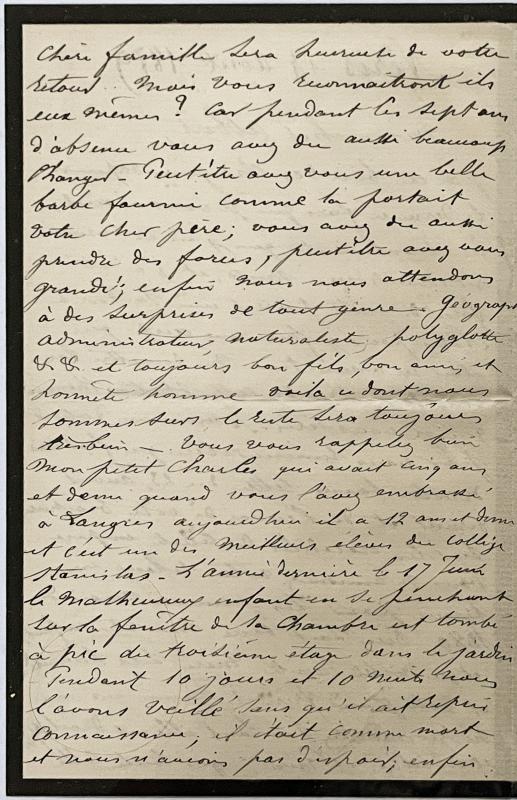 chère famille sera heureuse de votre
retour. Mais vous reconnaitront ils
eux mêmes? Car pendant les sept ans
d'absence vous avez du aussi beaucoup
changer - Peutêtre avez vous une belle
barbe fournie comme la portait
votre cher père; vous avez du aussi
prendre des forces, peutêtre avez vous
grandi; enfin nous nous attendons
à des surprises de tout genre. Geograph
administrateur, naturaliste, polyglotte
&. &. et toujours bon fils, bon ami, et
honnête homme voila ce dont nous
sommes surs le reste sera toujours
très bien -. Vous vous rappelez bien
mon petit Charles qui avait cinq ans
et demi quand vous l'avez embrassé
à Langres aujourdhui il a 12 ans et demi
et c'est un des meilleurs elèves du collège
Stanislas - L'année dernière le 17 Juin
le malheureux enfant en se penchant
sur la fenêtre de sa chambre est tombé
à pic du troisième étage dans le jardin
Pendant 10 jours et 10 nuits nous
l'avons veillé sans qu'il ait repris
connaissance; il était comme mort
et nous n'avions pas d'espoir; enfin